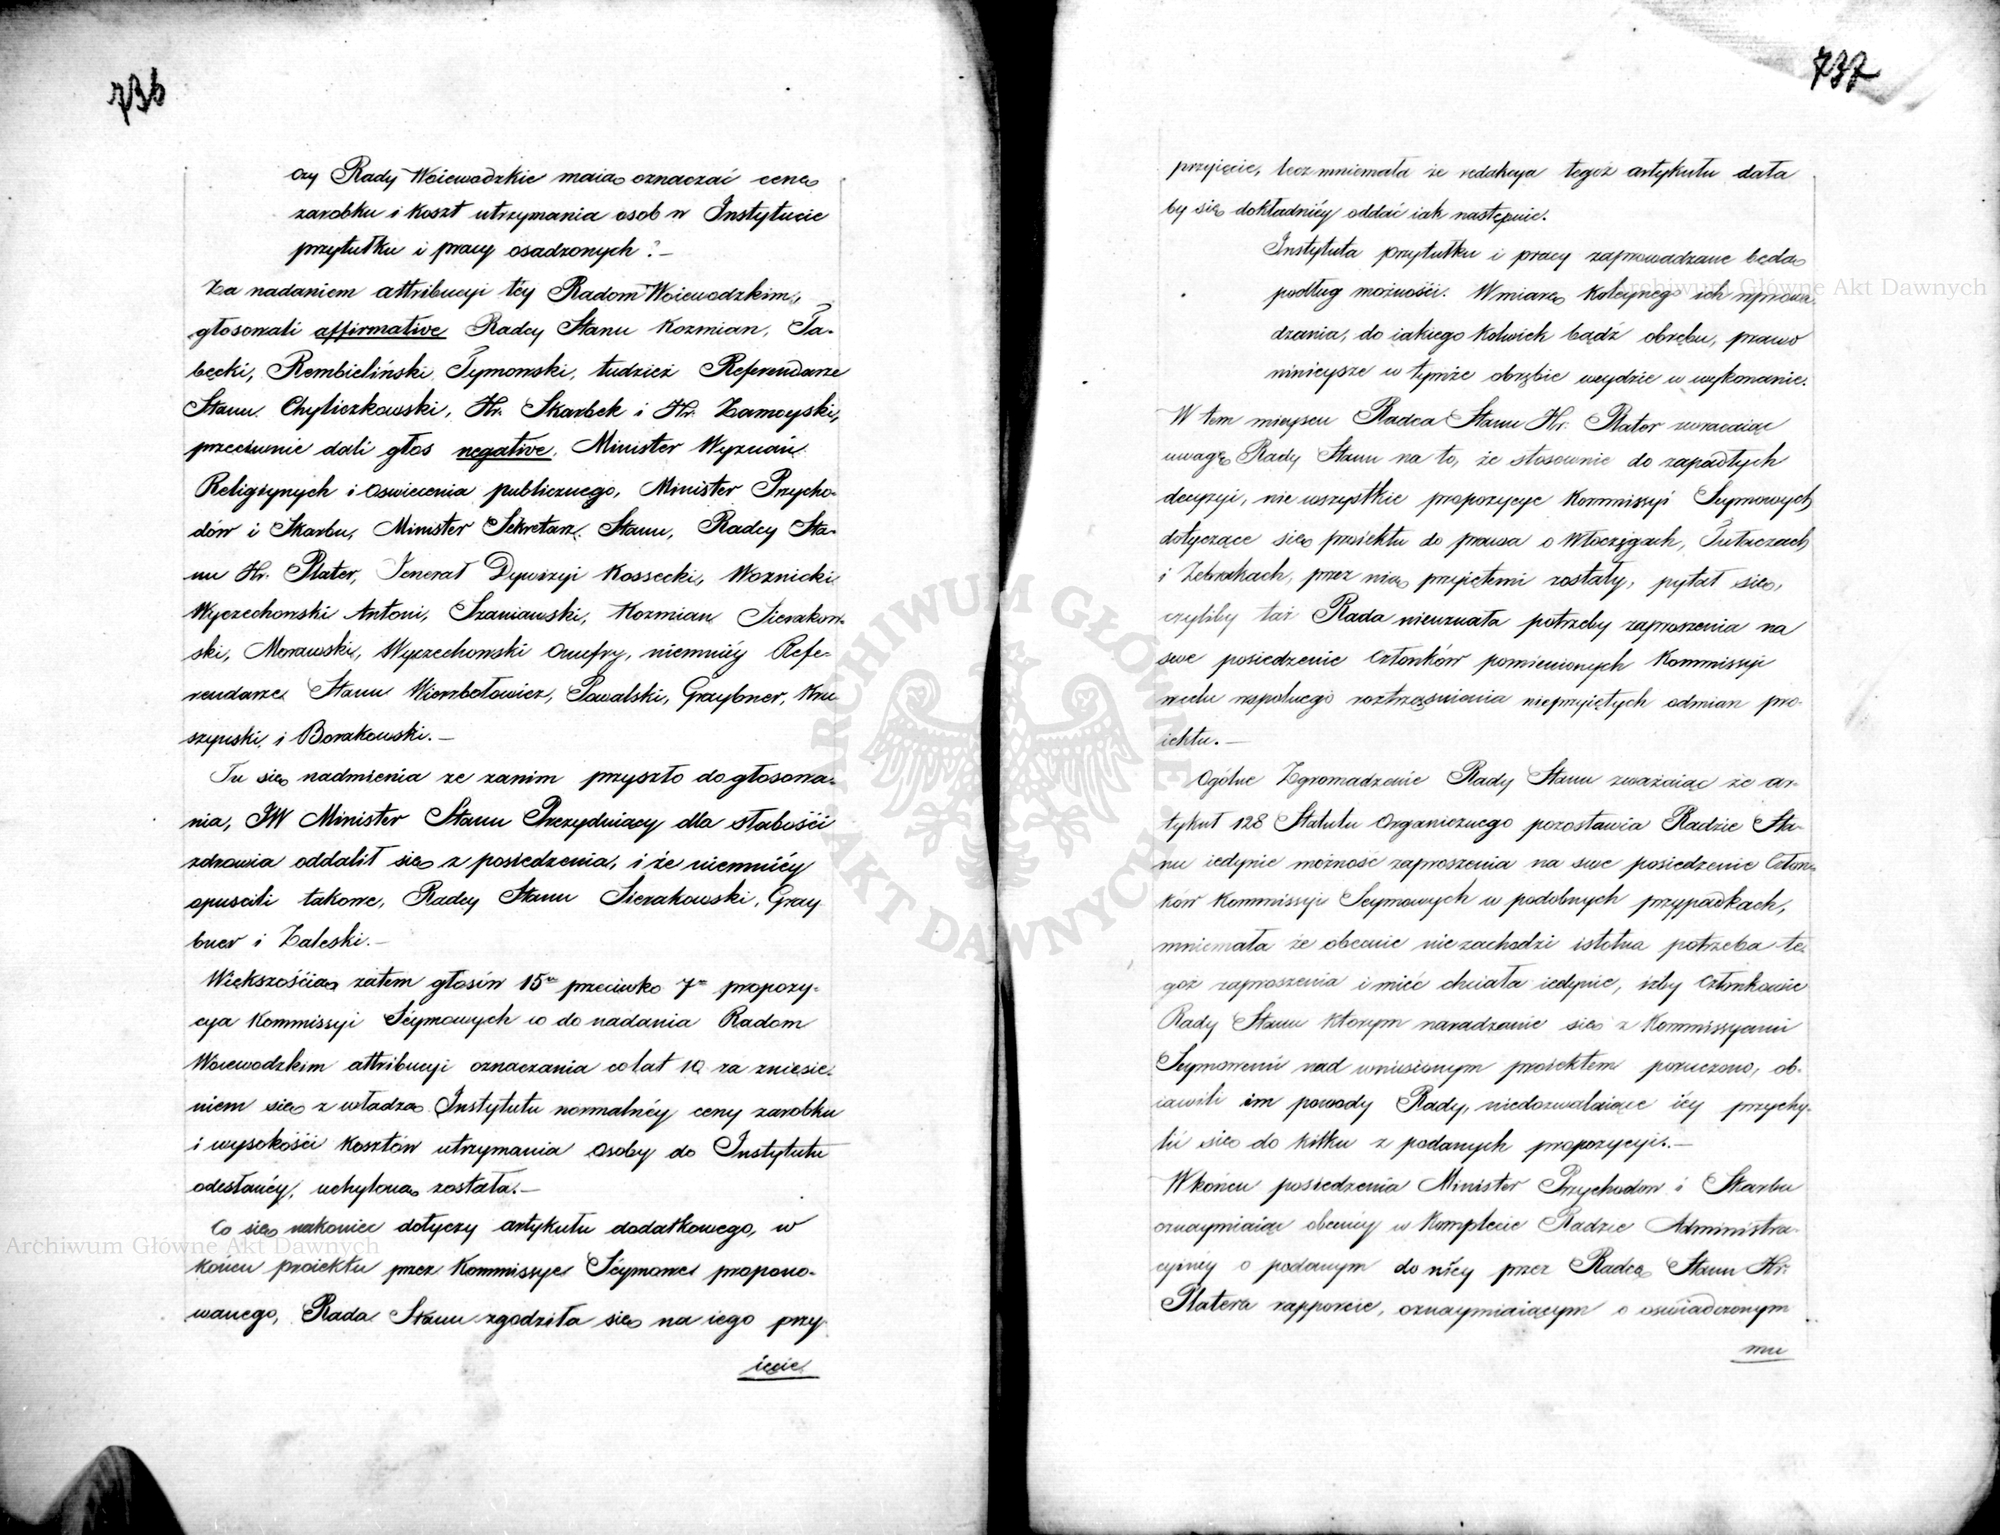 736
czy Rady Woiewodzkie maią oznaczać cenę
zarobku i koszt utrzymania osob w Instytucie
przytułku i pracy osadzonych? –
Za nadaniem attribucyi téy Radom Woiewodzkim,
głosowali affirmative Radcy Stanu Kozmian, Ta-
bęcki, Rembieliński, Tymowski, tudzież Referendarze
Stanu Chyliczkowski, Hr. Skarbek i Hr. Zamoyski,
przeciwnie dali głos negative, Minister Wyznań
Religiynych i Oswiecenia publicznego, Minister Przycho-
dów i Skarbu, Minister Sekretarz Stanu, Radcy Sta-
nu Hr. Plater, Jenerał Dywizyi Kossecki, Woznicki
Wyczechowski Antoni, Szaniawski, Kozmian Sierakow-
ski, Morawski, Wyczechowski Onufry, niemniéy Refe-
rendarze Stanu Wierzbołowicz, Pawalski, Graybner, Kru
szyński i Borakowski. –
Tu się nadmienia ze zanim przyszło do głosowa-
nia, JW Minister Stanu Prezyduiący dla słabości
zdrowia oddalił się z posiedzenia, i że niemniéy
opuscili takowe, Radcy Stanu Sierakowski, Gray
bner i Zaleski. –
Większością zatem głosów 15tu przeciwko 7m propozy-
cya Kommissyi Séymowych co do nadania Radom
Woiewodzkim attribucyi oznaczania co lat 10 za zniesie-
niem się z władzą Instytutu normalnéy ceny zarobku
i wysokości kosztów utrzymania osoby do Instytutu
odesłanéy, uchyloną została. –
Co się nakoniec dotyczy artykułu dodatkowego, w
końcu proiektu przez Kommissye Séymowe propono-
wanego, Rada Stanu zgodziła się na iego przy
ięcie
737
przyięcie, lecz mniemała że redakcya tegoż artykułu dała
by się dokładniéy oddać iak następuie.
Instytuta przytułku i pracy zaprowadzane będą
podług możności. W miarę koleynego ich wprowa
dzania, do iakiego kolwiek bądź obrębu, prawo
ninieysze w tymże obrębie weydzie w wykonanie.
W tem mieyscu Radca Stanu Hr. Plater zwracaiąc
uwagę Rady Stanu na to, że stosownie do zapadłych
decyzyi, nie wszystkie propozycye Kommissyi Seymowych
dotyczące się proiektu do prawa o Włóczęgach, Tułaczach
i Żebrakach, przez nią przyiętemi zostały, pytał się,
czyliby taż Rada nieuznała potrzeby zaproszenia na
swe posiedzenie Członków pomienionych Kommissyi
wcelu wspolnego roztrząsniania nieprzyiętych odmian pro-
iektu. –
Ogólne Zgromadzenie Rady Stanu zważaiąc że ar-
tykuł 128 Statutu Organicznego pozostawia Radzie Sta-
nu iedynie możność zaproszenia na swe posiedzenie Człon-
ków Kommissyi Seymowych w podobnych przypadkach,
mniemała że obecnie nie zachodzi istotna potrzeba te-
goż zaproszenia i mieć chciała iedynie, iżby Członkowie
Rady Stanu którym naradzanie się z Kommissyami
Seymowemi nad wniesionym proiektem poruczono, ob-
iawili im powody Rady, niedozwalaiące iéy przychy-
lić się do kilku z podanych propozycyi. –
W końcu posiedzenia Minister Przychodow i Skarbu
oznaymiaiąc obecnéy w komplecie Radzie Administra-
cyinéy o podanym do niéy przez Radcę Stanu Hr.
Platera rapporcie, oznaymiaiącym o oswiadczonym
mu
Archiwum Główne Akt Dawnych
Archiwum Główne Akt Dawnych
ARCHIWUM GŁÓWNE AKT DAWNYCH